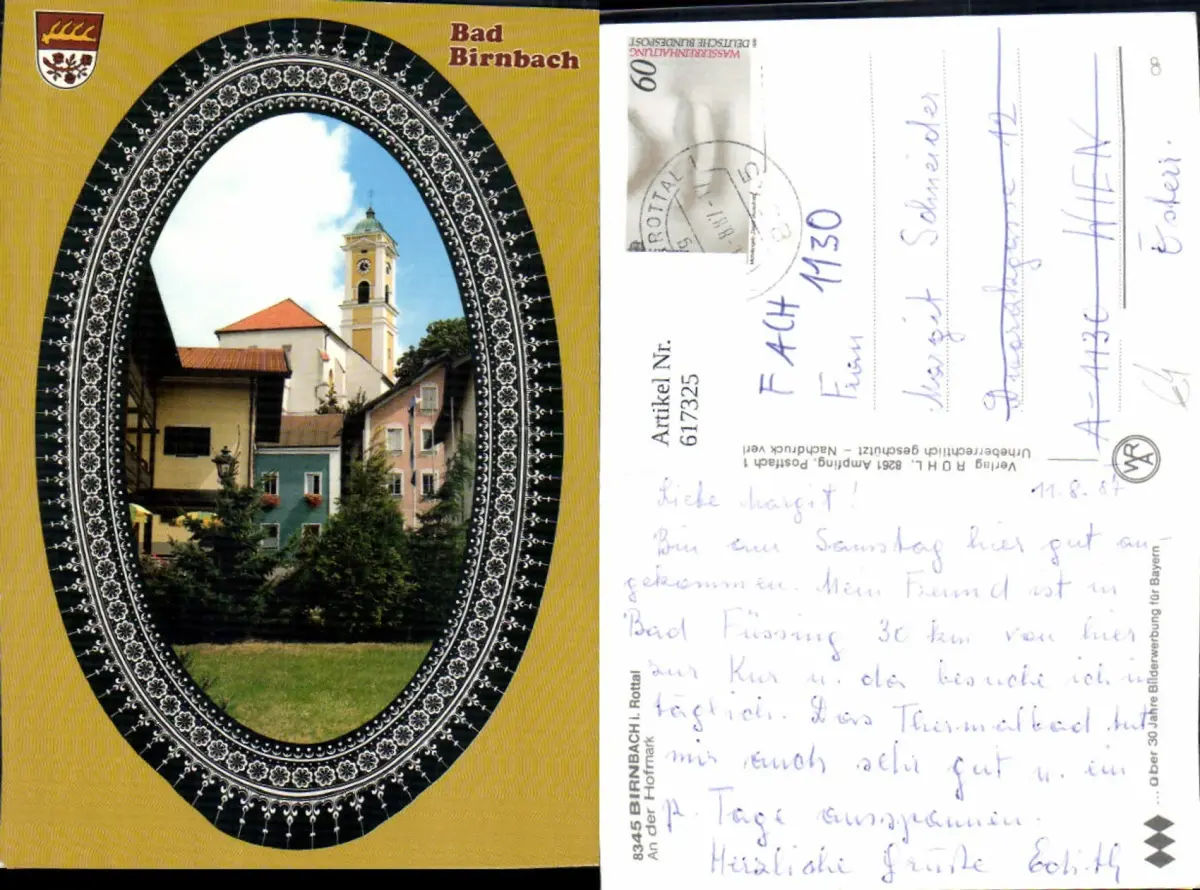 Bad
Birnbach
WASSERREINHALTUNG
DEUTSCHE BUNDESPOST
60
ROTTAL
Artikel Nr.
617325
FACH 1130
Frau
Margit Schneider
12
A-1130 WIEN
Verlag RÖHL, 8261 Ampfing, Postfach 1
Urheberrechtlich geschützt – Nachdruck verb
WRA
Liebe Margit! 11.8.87
Bin am Samstag hier gut an-
gekommen. Mein Freund ist in
Bad Füssing 30 km von hier
zur Kur u. da besuche ich ihn
täglich. Das Thermalbad tut
mir auch sehr gut u. ein
p. Tage ausspannen.
Herzliche Grüße Edith
8345 BIRNBACH i. Rottal
An der Hofmark
... über 30 Jahre Bilderwerbung für Bayern